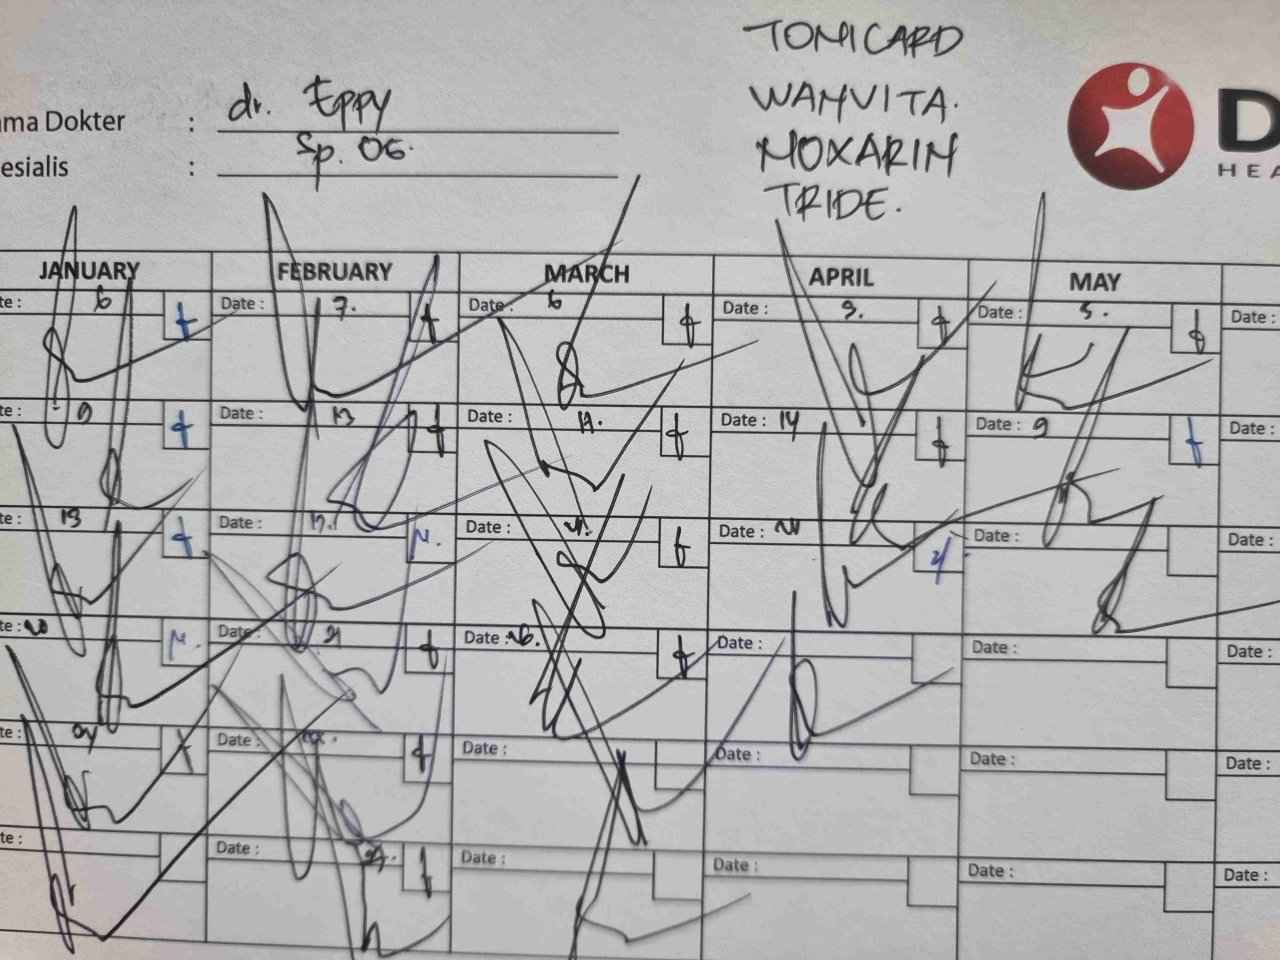 TOMICARD
WANVITA.
MOXARIN
TRIDE.
D
HEA
ama Dokter : dr. Eppy
esialis : Sp. OG.
JANUARY FEBRUARY MARCH APRIL MAY
te: 6 Date : 7. Date: 6 Date : 3. Date : 5. Date :
te: 9 Date : 13 Date : 12. Date : 14 Date : 9 Date :
te: 13 Date : 17. Date : 21. Date : 21 Date : Date :
te: 20 Date: 21 Date : 26. Date : Date : Date :
te: 24 Date : Date : Date : Date : Date :
te: Date : 27. Date : Date : Date : Date :